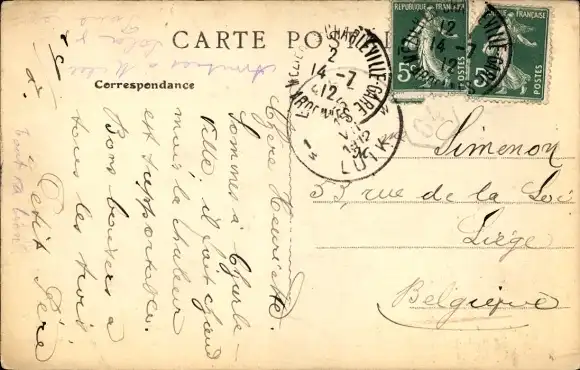 CARTE POSTALE
Correspondance
RÉPUBLIQUE FRANÇAISE
5c
POSTES
FRANÇAISE
POSTES
CHARLEVILLE-GARE
12
14-7
12
ARDENNES
CHARLEVILLE-GARE
2
14-7
12
ARDENNES
Simenon
53, rue de la Loi
Liège
Belgique
Chère Henriette.
Sommes à Charle-
ville. il fait chaud
mais la chaleur
est supportable.
Bons baisers à
tous les trois
Petit Père